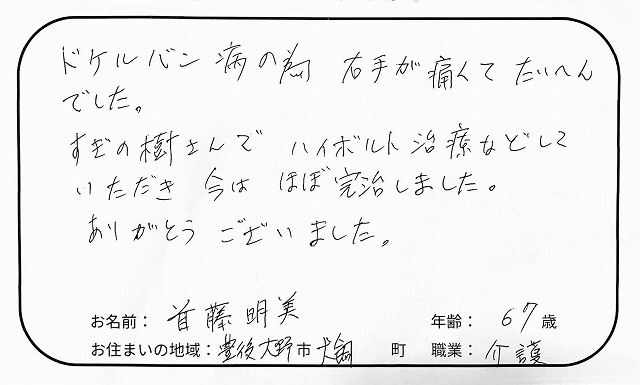 ドケルバン病の為 右手が痛くて たいへん
でした。
すぎの樹さんで ハイボルト治療などして
いただき 今は ほぼ完治しました。
ありがとう ございました。
お名前： 首藤明美 年齢： 67歳
お住まいの地域：豊後大野市犬飼 町 職業： 介護